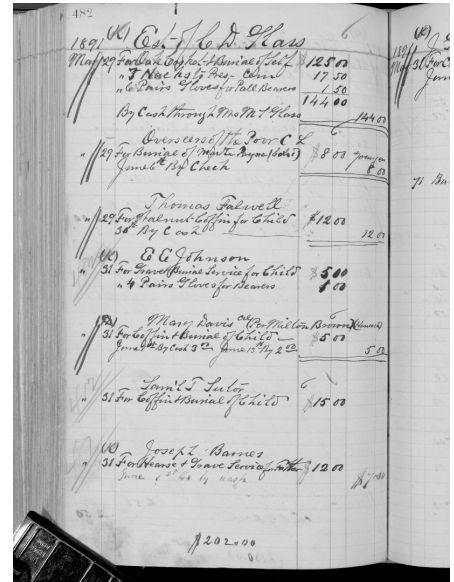 482
(K) Est of C D Glass
1891
May 29 For Oak Casket & Burial of Self $125 00
" 7 Hacks to Pres- Cem 17 50
" 6 Pairs Gloves for Pall Bearers 1 50
144 00
By Cash through Mrs M S Glass 144 00
Overseers of the Poor C L
" 29 For Burial of Payne (Col'd) $8 00
June 6th By Check 8 00
Thomas Falwell
" 29 For Walnut Coffin for Child $12 00
30th By Cash 12 00
(K) E C Johnson
" 31 For Grave & Burial Service for Child $5 00
" 4 Pairs Gloves for Bearers 1 00
Mary Davis col (Per Milton Brown)
" 31 For Coffin & Burial of Child $5 00
By Cash 3 00 June 13th By 2 00 5 00
Sam'l T Sutor
" 31 For Coffin & Burial of Child $15 00
(K) Joseph Barnes
" 31 For Hearse & Grave Service for Father $12 00
June
$202.00
(K)
1891
May 31 For C
June
71 Bu